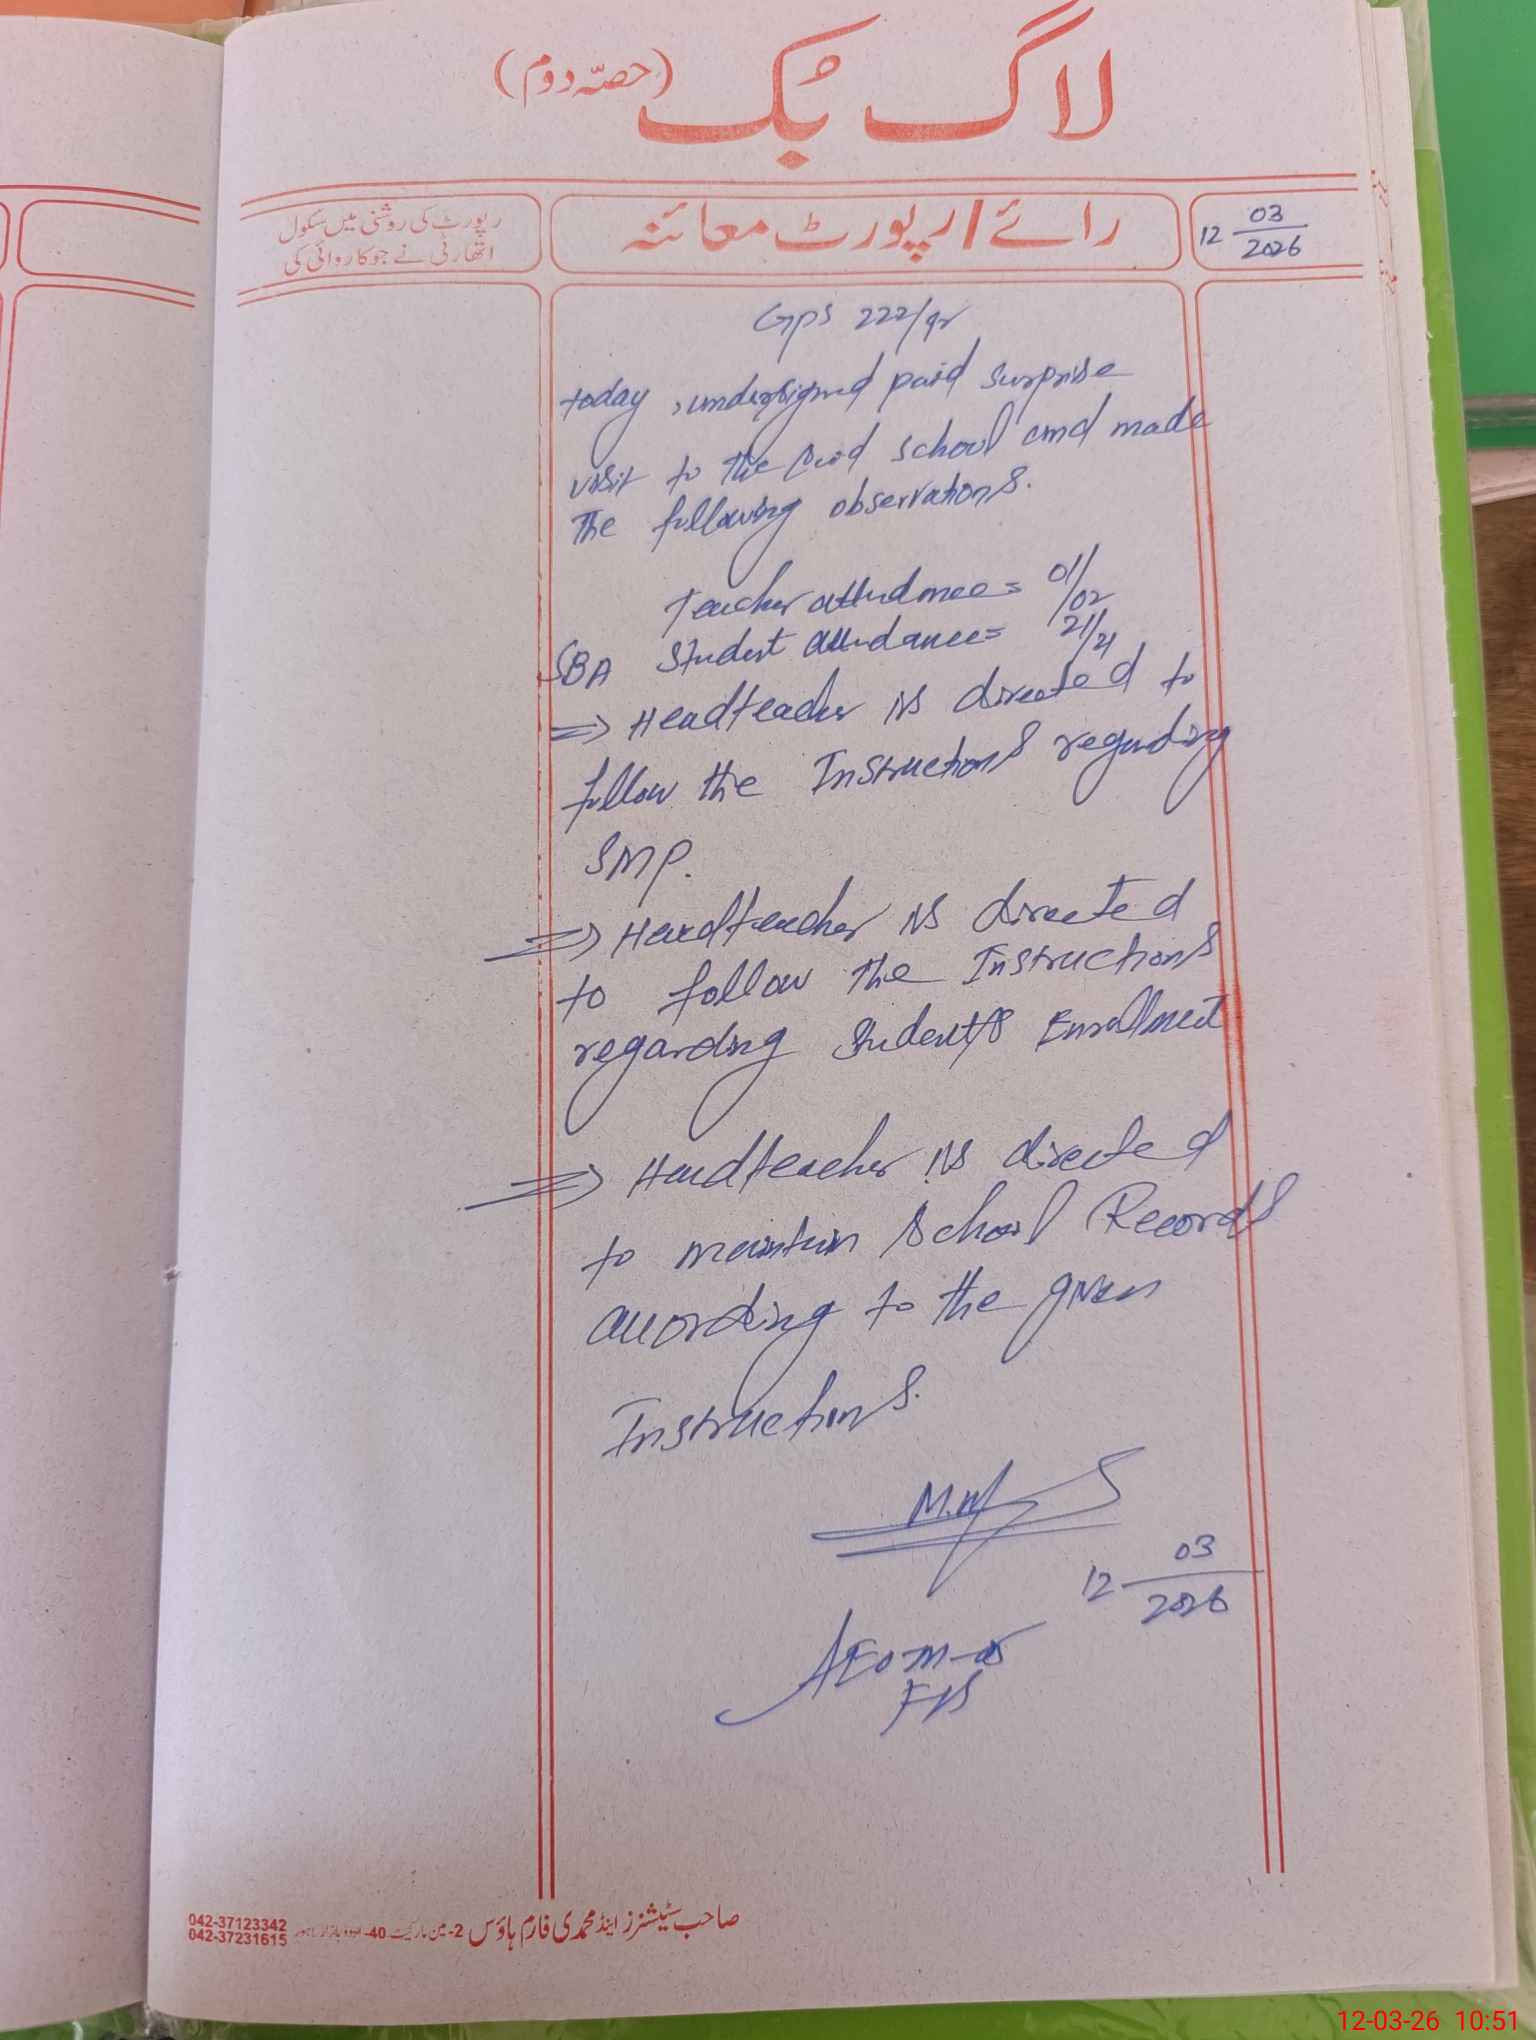 لاگ بُک (حصّہ دوم)
12 03/2026
رائے/رپورٹ معائنہ
رپورٹ کی روشنی میں سکول
اتھارٹی نے جو کاروائی کی
GPS 222/9r
today, undersigned paid surprise
visit to the said school and made
The following observations.
Teacher attendance = 01/02
SBA Student attendance = 21/21
=> Headteacher is directed to
follow the Instructions regarding
SMP.
=> Headteacher is directed
to follow the Instructions
regarding Student's Enrollment
=> Headteacher is directed
to maintain School Records
according to the given
Instructions.
12 03/2026
AEO M-
صاحب سٹیشنرز اینڈ محمدی فارم ہاؤس 2-مین مارکیٹ 40-اردو بازار لاہور
042-37123342
042-37231615
12-03-26 10:51